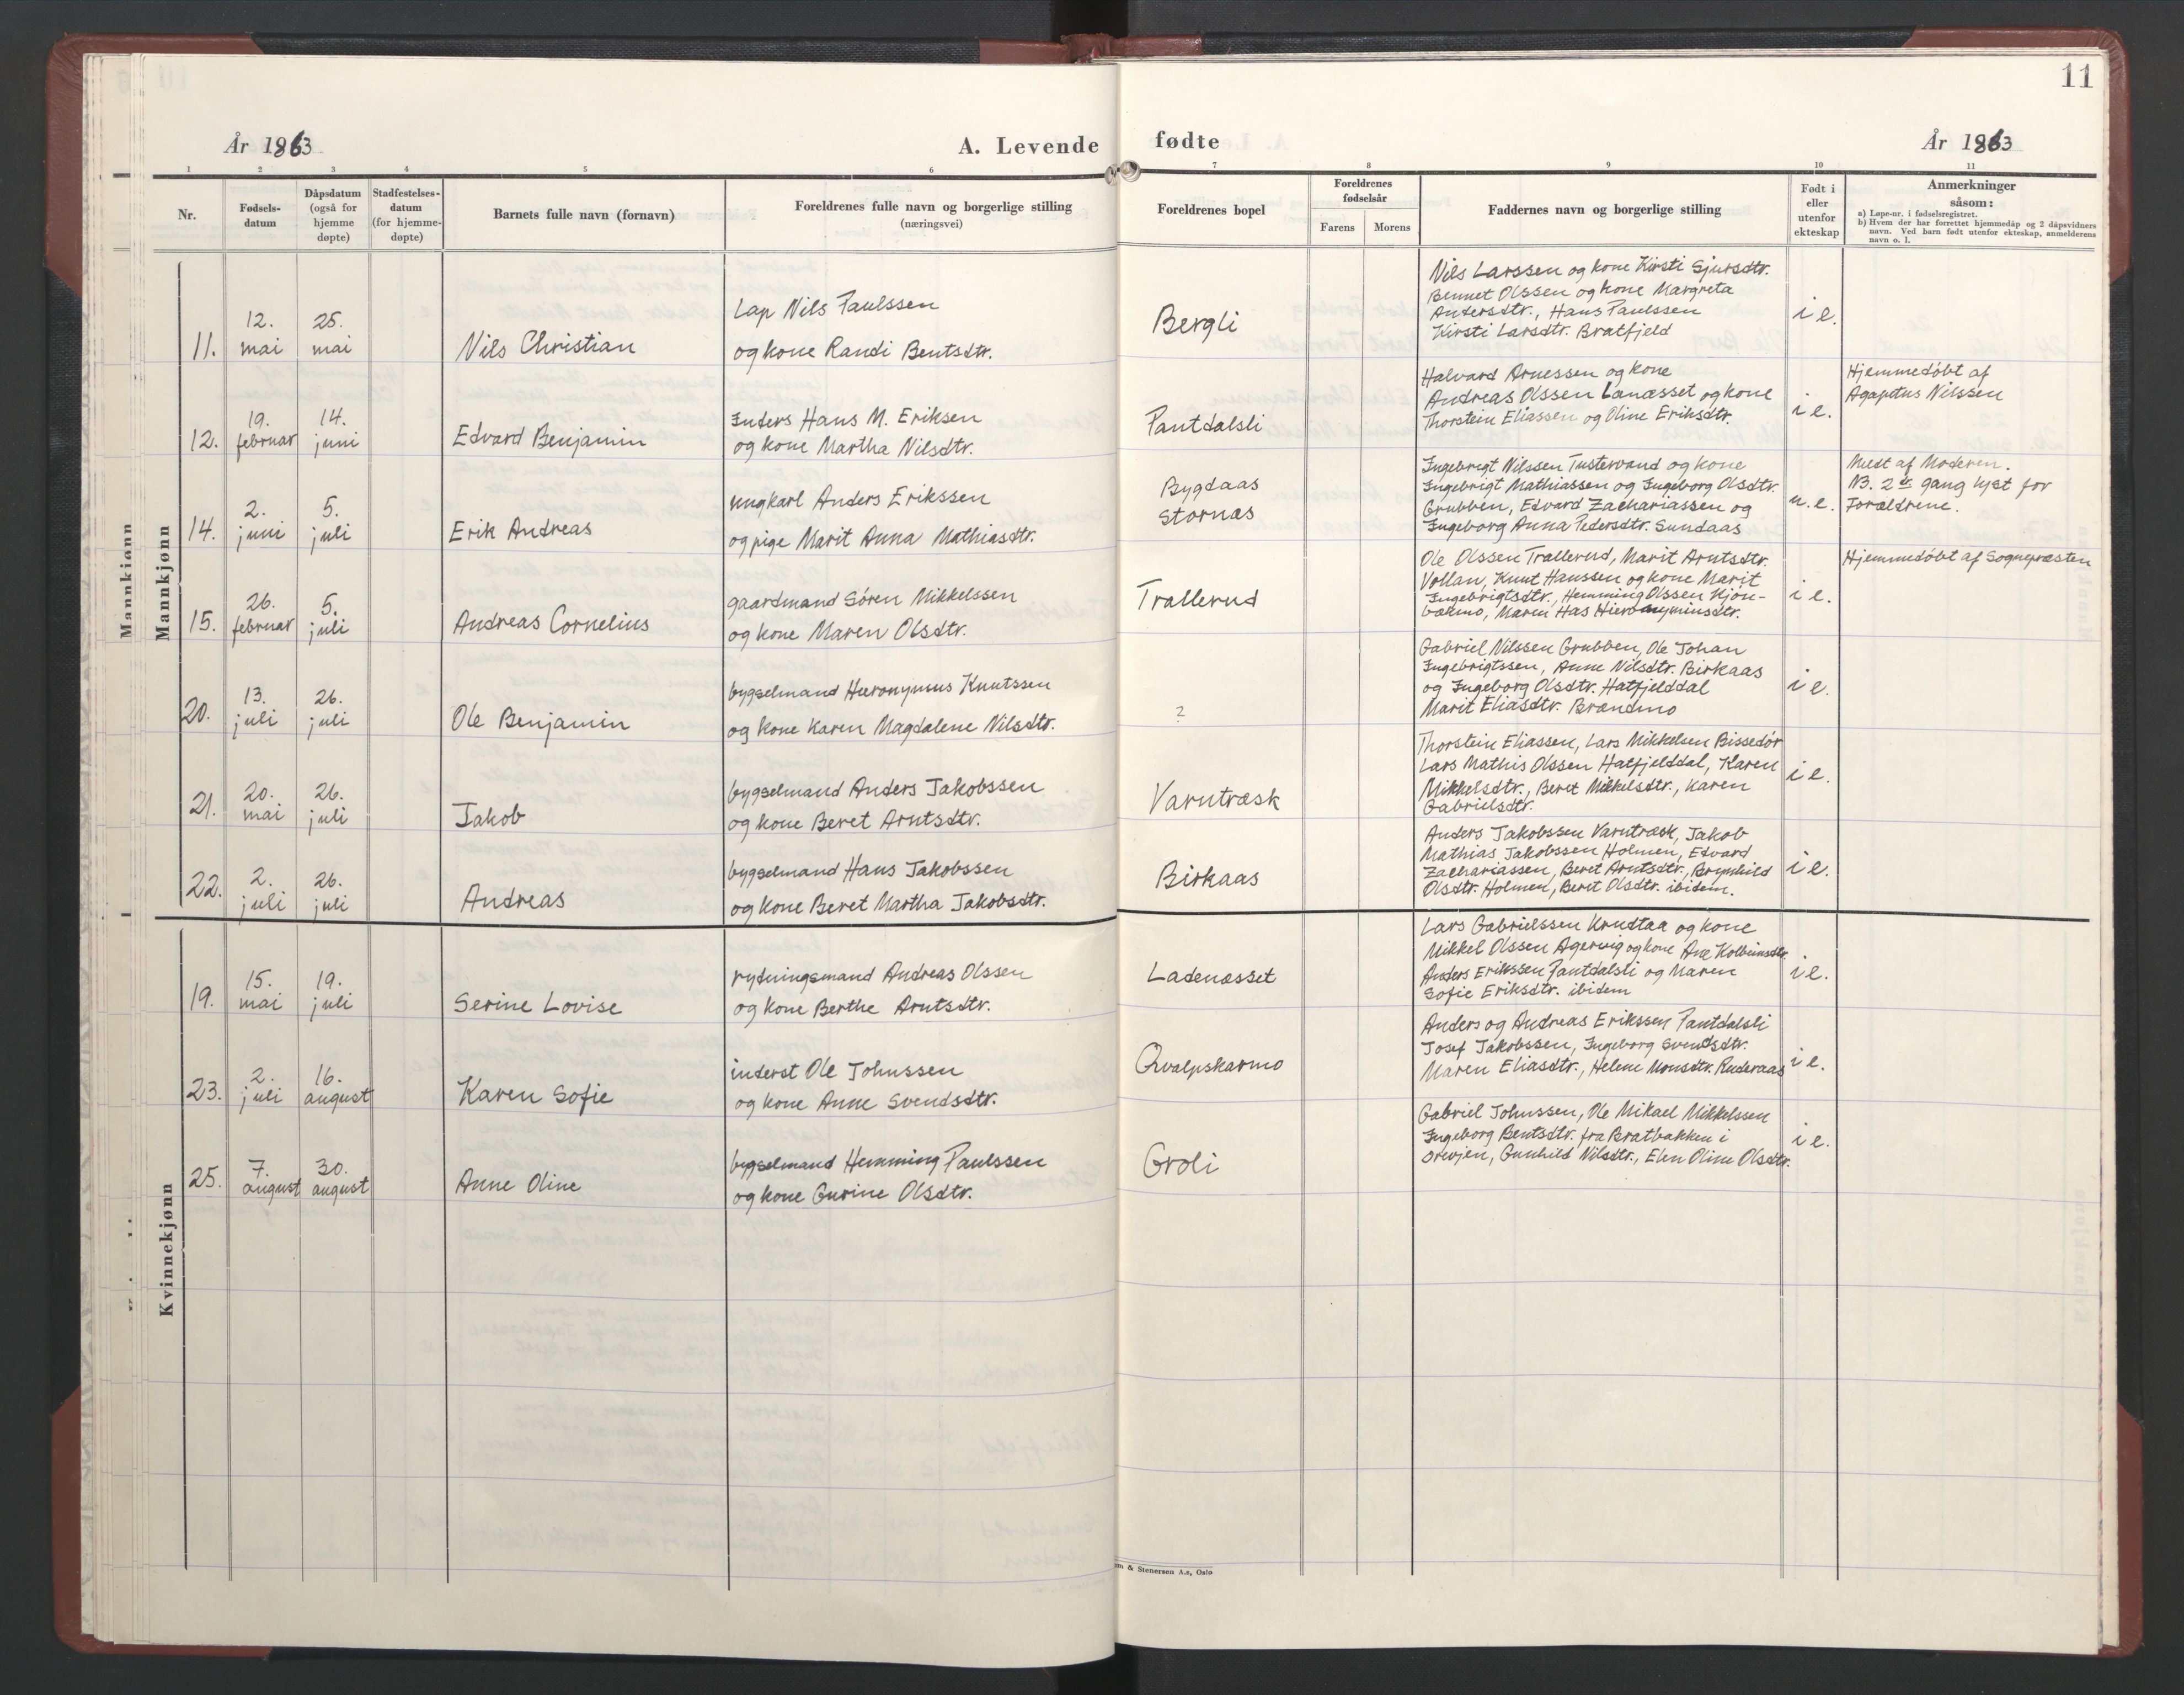 11
År 1863
A. Levende fødte
År 1863
1 2 3 4 5 6 7 8 9 10 11
Nr.
Fødsels-
datum
Dåpsdatum
(også for
hjemme
døpte)
Stadfestelses-
datum
(for hjemme-
døpte)
Barnets fulle navn (fornavn)
Foreldrenes fulle navn og borgerlige stilling
(næringsvei)
Foreldrenes bopel
Foreldrenes
fødselsår
Farens Morens
Faddernes navn og borgerlige stilling
Født i
eller
utenfor
ekteskap
Anmerkninger
såsom:
a) Løpe-nr. i fødselsregistret.
b) Hvem der har forrettet hjemmedåp og 2 dåpsvidners
navn. Ved barn født utenfor ekteskap, anmelderens
navn o. l.
Mannkjønn
Mannkjønn
11.
12.
mai
25.
mai
Nils Christian
Lap Nils Paulssen
og kone Randi Bentsdtr.
Bergli
Nils Larssen og kone Kirsti Sjursdtr.
Bennet Olssen og kone Margreta
Andersdtr., Hans Paulssen
Kirsti Larsdtr. Bratfjeld
i e.
12.
19.
februar
14.
juni
Edvard Benjamin
Inders Hans M. Eriksen
og kone Martha Nilsdtr.
Pantdalsli
Halvard Arnessen og kone
Andreas Olssen Lanæsset og kone
Thorstein Eliassen og Oline Eriksdtr.
i e.
Hjemmedøbt af
Agapetus Nilssen
14.
2.
juni
5.
juli
Erik Andreas
ungkarl Anders Erikssen
og pige Marit Anna Mathiasdtr.
Bygdaas
Stornæs
Ingebrigt Nilssen Tustervand og kone
Ingebrigt Mathiassen og Ingeborg Olsdtr.
Grubben, Edvard Zachariassen og
Ingeborg Anna Pedersdtr. Sundaas
u. e.
Meldt af Moderen.
NB. 2de gang lyst for
Forældrene.
15.
26.
februar
5.
juli
Andreas Cornelius
gaardmand Søren Mikkelssen
og kone Maren Olsdtr.
Trallerud
Ole Olssen Trallerud, Marit Arntsdtr.
Vollan, Knut Hanssen og kone Marit
Ingebrigtsdtr., Hemming Olssen Kjøn-
bækmo, Maren Has Hieronyminsdtr.
i e.
Hjemmedøbt af Sognepræsten
20.
13.
juli
26.
juli
Ole Benjamin
bygselmand Hieronymus Knutssen
og kone Karen Magdalene Nilsdtr.
?
Gabriel Nilssen Grubben, Ole Johan
Ingebrigtssen, Anne Nilsdtr. Birkaas
og Ingeborg Olsdtr. Hatfjelddal
Marit Eliasdtr. Brændmo
i e.
21.
20.
mai
26.
juli
Jakob
bygselmand Anders Jakobssen
og kone Beret Arntsdtr.
Varntræsk
Thorstein Eliassen, Lars Mikkelsen Bissedør
Lars Mathis Olssen Hatfjelddal, Karen
Mikkelsdtr., Beret Mikkelsdtr., Karen
Gabrielsdtr.
i e.
22.
2.
juli
26.
juli
Andreas
bygselmand Hans Jakobssen
og kone Beret Martha Jakobsdtr.
Birkaas
Anders Jakobssen Varntræsk, Jakob
Mathias Jakobssen Holmen, Edvard
Zachariassen, Beret Arntsdtr., Brynhild
Olsdtr. Holmen, Beret Olsdtr. ibidem.
i e.
Kvinnekjønn
19.
15.
mai
19.
juli
Serine Lovise
rydningsmand Andreas Olssen
og kone Berthe Arntsdtr.
Ladenæsset
Lars Gabrielssen Krudtaa og kone
Mikkel Olssen Agervig og kone Ane Kolbeinsdtr.
Anders Erikssen Pantdalsli og Maren
Sofie Eriksdtr. ibidem
i e.
23.
2.
juli
16.
august
Karen Sofie
inderst Ole Johnssen
og kone Anne Svendsdtr.
Qvalpskarmo
Anders og Andreas Erikssen Pantdalsli
Josef Jakobssen, Ingeborg Svendsdtr.
Maren Eliasdtr., Helene Monsdtr. Ruderaas
i e.
25.
7.
august
30.
august
Anne Oline
bygselmand Hemming Paulssen
og kone Gurine Olsdtr.
Groli
Gabriel Johnssen, Ole Mikael Mikkelssen
Ingeborg Bentsdtr. fra Bratbakken i
Orevjen, Gunhild Nilsdtr., Elen Oline Olsdtr.
i e.
& Stenersen A.s, Oslo